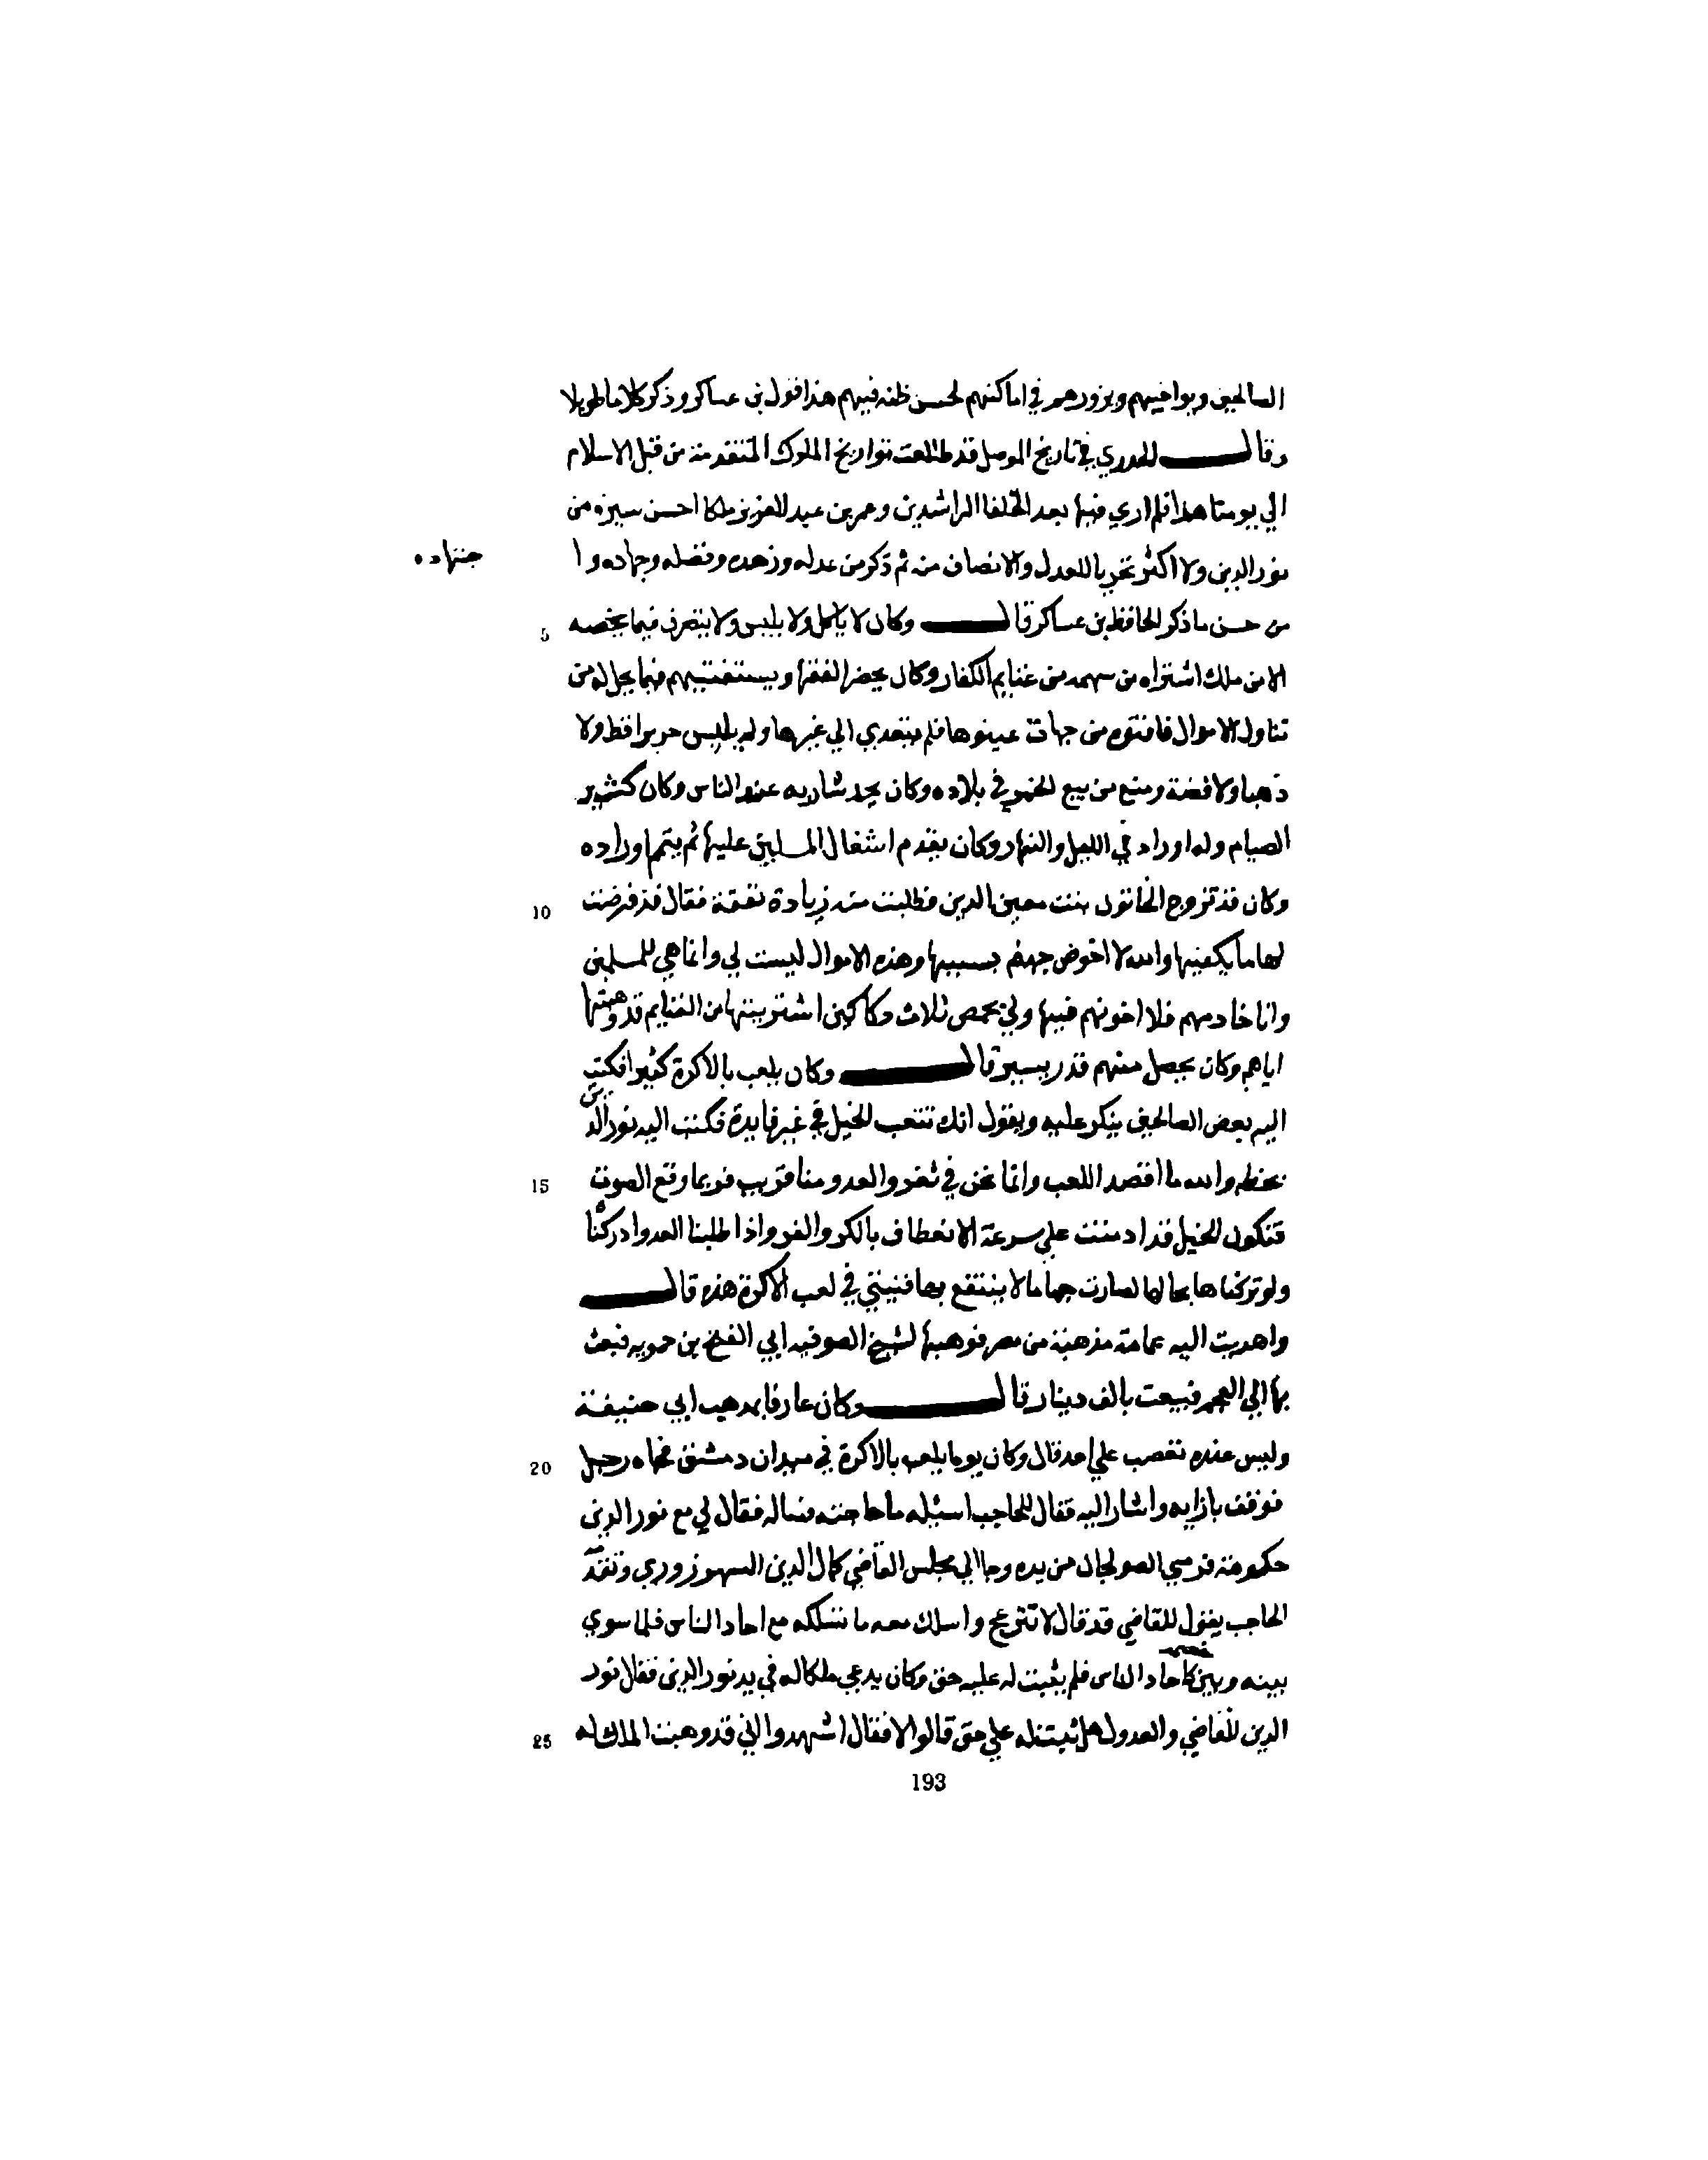 الصالحين ويواخيهم ويزورهم في اماكنهم لحسن ظنه فيهم هذا قول بن عساكر وذكر كلاما طويلا
وقال الجزري في تاريخ الموصل قد طالعت تواريخ الملوك المتقدمة من قبل الاسلام
الي يومنا هذا فلم اري فيها بعد الخلفا الراشدين وعمر بن عبد العزيز ملكا احسن سيرة من
نور الدين ولا اكثر تحريا للعدل والانصاف منه ثم ذكر من عدله وزهده وفضله وجهاده وا جتهاده
من حسن ما ذكر الحافظ بن عساكر قال وكان لا ياكل ولا يلبس ولا يتصرف فيما يخصه
5
الا من ملك اشتراه من سهمه من غنايم الكفار وكان يحضر الفقها ويستفتيهم فيما يحل له من
تناول الاموال فافتوه من جهات عينوها فلم يتعدي الي غيرها ولم يلبس حريرا قط ولا
ذهبا ولا فضة ومنع من بيع الخمر في بلاده وكان يحد شاربه عند الناس وكان كثير
الصيام وله اوراد في الليل والنهار وكان يقدم اشغال المسلمين عليها ثم يتمم اوراده
وكان قد تزوج الخاتون بنت معين الدين فطلبت منه زيادة نفقة فقال قد فرضت
10
لها ما يكفيها والله لا اخوض جهنم بسببها وهذه الاموال ليست لي وانما هي للمسلمين
وانا خادمهم فلا اخونهم فيها ولي بحمص ثلاث دكاكين اشتريتها من الغنايم قد وهبتها
اياهم وكان يحصل منهم قدر يسير قال وكان يلعب بالاكرة كثيرا فكتب
اليه بعض الصالحين ينكر عليه ويقول انك تتعب الخيل في غير فايدة فكتب اليه نور الدين
بخطه والله ما اقصد اللعب وانما نحن في ثغر والعدو منا قريب فربما وقع الصوت
15
فتكون الخيل قد ادمنت علي سرعة الانعطاف بالكر والفر واذا طلبنا العدو ادركنا
ولو تركناها بحالها لصارت جماما لا ينتفع بها فنيتي في لعب الاكرة هذه قال
واهديت اليه عمامة مذهبة من مصر فوهبها لشيخ الصوفيه ابي الفتح بن حمويه فبعث
بها الي العجم فبيعت بالف دينار قال وكان عارفا بمذهب ابي حنيفة
وليس عنده تعصب علي احد قال وكان يوما يلعب بالاكرة في ميدان دمشق فجاه رجل
20
فوقف بازايه واشار اليه فقال للحاجب اسئله ما حاجته فساله فقال لي مع نور الدين
حكومة فرمي الصولجان من يده وجا الي مجلس القاضي كمال الدين السهرزوري وتقدّم
الحاجب يقول للقاضي قد قال لا تنزعج واسلك معه ما تسلكه مع احاد الناس فلما سوي
بينه وبين خصمه كاحاد الناس فلم يثبت له عليه حق وكان يدعي ملكا له في يد نور الدين فقال نور
الدين للقاضي والعدول هل ثبت له علي حق قالوا لا فقال اشهدوا اني قد وهبت الملك له
25
193